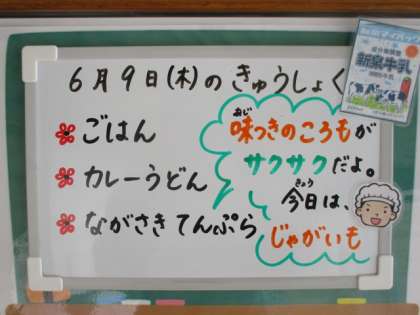 6月9日(木)のきゅうしょく
ごはん
カレーうどん
ながさきてんぷら
味つきのころもが
あじ
サクサクだよ。
きょう
今日は、
じゃがいも
新泉牛乳